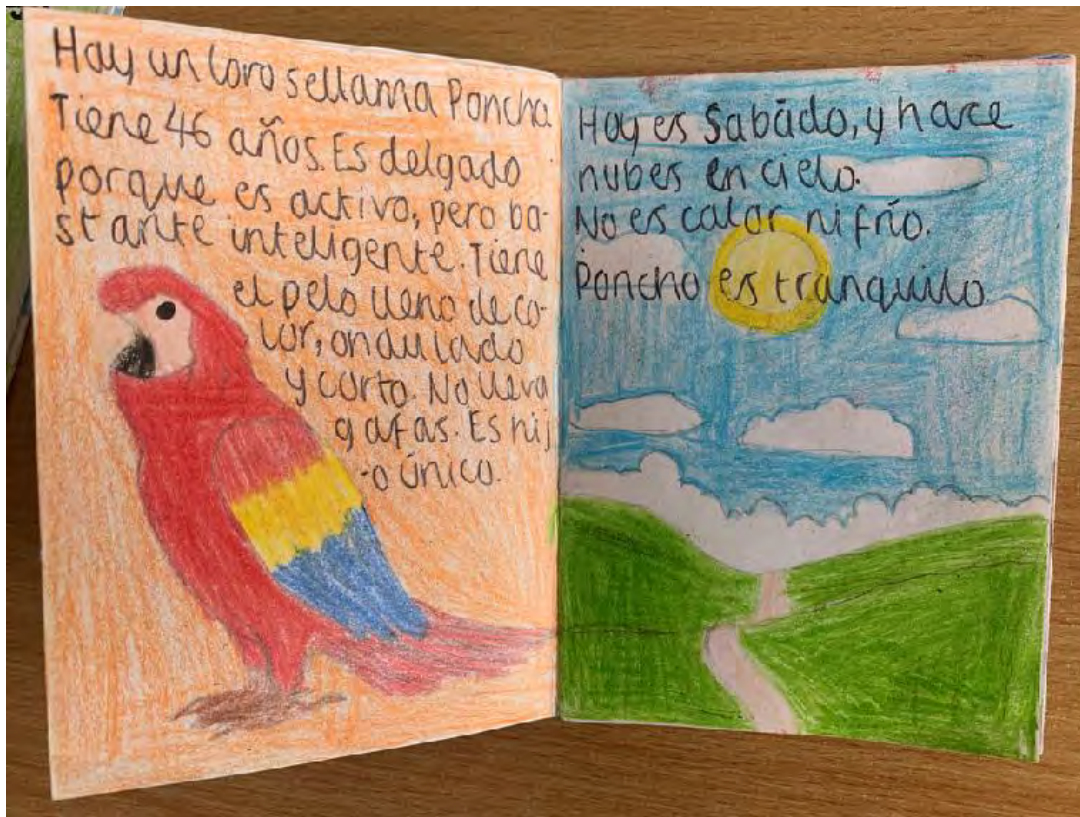 Hay un loro sellama Poncha
Tiene 46 años. Es delgado
porque es activo, pero ba-
stante inteligente. Tiene
el pelo lleno de co-
lor, ondulado
y corto. No lleva
gafas. Es hij
-o único.
Hoy es Sabādo, y hace
nubes en cielo.
No es calor ni frío.
Poncho es tranquilo